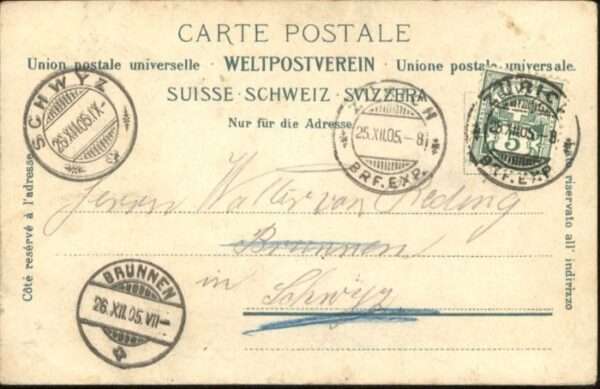 CARTE POSTALE
Union postale universelle · WELTPOSTVEREIN · Unione postale universale.
SUISSE · SCHWEIZ · SVIZZERA
Nur für die Adresse
SCHWYZ
26.XII.05.IX-
25.XII.05.-8
BRF.EXP.
ZÜRICH
25.XII.05.-8
BRF.EXP.
5
Côté reservé à l'adresse
riservato all' indirizzo
Herrn Walter von Reding
Brunnen
in
Schwyz
BRUNNEN
26.XII.05.VII-